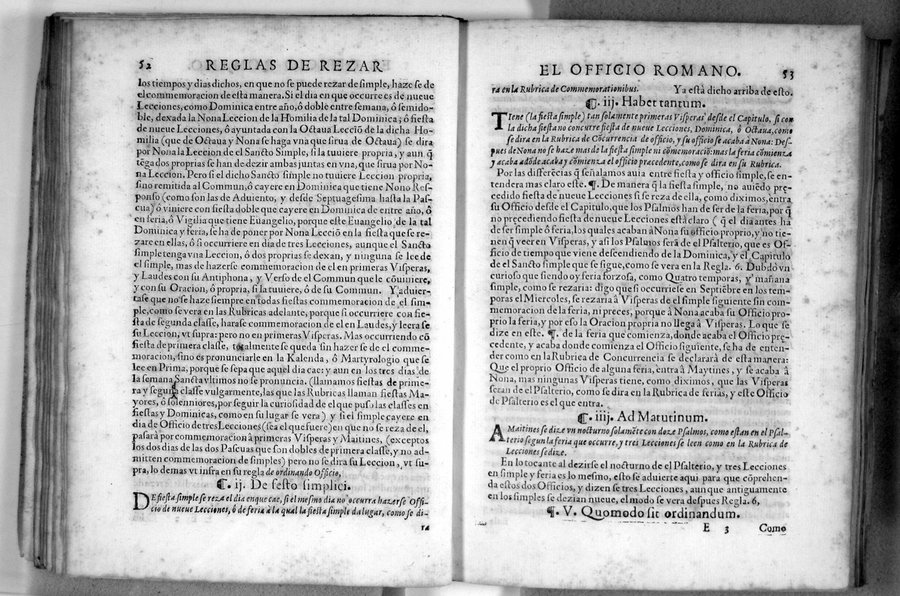 52 REGLAS DE REZAR
los tiempos y dias dichos, en que no se puede rezar de simple, haze se de
el commemoracion de esta manera. Si el dia en que occurre es de nueue
Lecciones, como Dominica entre año, ô doble entre semana, ô semido-
ble, dexada la Nona Leccion de la Homilia de la tal Dominica; ô fiesta
de nueue Lecciones, ô ayuntada con la Octaua Lecciō de la dicha Ho-
milia (que de Octaua y Nona se haga vna que sirua de Octaua) se dira
por Nona la Leccion de el Sancto Simple, si la tuuiere propria, y aun q̄
tēga dos proprias se han de dezir ambas juntas en vna, que sirua por No-
na Leccion. Pero si el dicho Sancto simple no tuuiere Leccion propria,
sino remitida al Commun, ô cayere en Dominica que tiene Nono Res-
ponso (como son las de Aduiento, y desde Septuagesima hasta la Pas-
cua) ô viniere con fiesta doble que cayere en Dominica de entre año, ô
en feria, ô Vigilia que tiene Euangelio, porque este Euangelio de la tal
Dominica y feria, se ha de poner por Nona Lecciō en la fiesta que se re-
zare en ellas, ô si occurriere en dia de tres Lecciones, aunque el Sancto
simple tenga vna Leccion, ô dos proprias se dexan, y ninguna se lee de
el simple, mas de hazerse commemoracion de el en primeras Visperas,
y Laudes con su Antiphona, y Verso de el Commun que le cōuiniere,
y con su Oracion, ô propria, si la tuuiere, ô de su Commun. Y aduier-
tase que no se haze siempre en todas fiestas commemoracion de el sim-
ple, como se vera en las Rubricas adelante, porque si occurriere con fie-
sta de segunda classe, harase commemoracion de el en Laudes, y leera se
su Leccion, vt supra: pero no en primeras Visperas. Mas occurriendo cō
fiesta de primera classe, totalmente se queda sin hazer se de el comme-
moracion, sino es pronunciarle en la Kalenda, ô Martyrologio que se
lee en Prima, porque se sepa que aquel dia cae: y aun en los tres dias de
la semana Sancta vltimos no se pronuncia. (llamamos fiestas de prime-
ra y segunda classe vulgarmente, las que las Rubricas llaman fiestas Ma-
yores, ô solenniores, por seguir la curiosidad de el que puso las classes en
fiestas y Dominicas, como en su lugar se vera) y si el simple cayere en
dia de Officio de tres Lecciones (sea el que fuere) en que no se reza de el,
passarâ por commemoracion â primeras Visperas y Maitines, (exceptos
los dos dias de las dos Pascuas que son dobles de primera classe, y no ad-
mitten commemoracion de simples) pero no se dira su Leccion, vt su-
pra, lo demas vt infra en su regla de ordinando Officio,
¶. ij. De festo simplici.
DE fiesta simple se reza el dia en que cae, si el mesmo dia no occurra hazerse Offi-
cio de nueue Lecciones, ô de feria â la qual la fiesta simple da lugar, como se di-
ra
EL OFFICIO ROMANO. 53
ra en la Rubrica de Commemorationibus. Ya està dicho arriba de esto.
¶. iij. Habet tantum.
TIene (la fiesta simple) tan solamente primeras Visperas desde el Capitulo, si con
la dicha fiesta no concurre fiesta de nueue Lecciones, Dominica, ô Octaua, como
se dira en la Rubrica de Cōcurrencia de officio, y su officio se acaba â Nona: Des-
pues de Nona no se haze mas de la fiesta simple ni cōmemoraciō: mas la feria cōmiença
y acaba adōde acaba y comiença el officio precedente, como se dira en su Rubrica.
Por las differēcias q̄ señalamos auia entre fiesta y officio simple, se en-
tendera mas claro este. ¶. De manera q̄ la fiesta simple, no auiēdo pre-
cedido fiesta de nueue Lecciones si se reza de ella, como diximos, entra
su Officio desde el Capitulo, que los Psalmos han de ser de la feria, por q̄
no precediendo fiesta de nueue Lecciones està claro ( q̄ el dia antes ha
de ser simple ô feria, los quales acaban â Nona su officio proprio, y no tie-
nen q̄ veer en Visperas, y assi los Psalmos serâ de el Psalterio, que es Of-
ficio de tiempo que viene descendiendo de la Dominica, y el Capitulo
de el Sancto simple que se sigue, como se vera en la Regla. 6. Dubdô vn
curioso que siendo oy feria forzosa, como Quatro temporas, y mañana
simple, como se rezaria: digo que si occurriesse en Septiēbre en los tem-
poras el Miercoles, se rezaria â Visperas de el simple siguiente sin com-
memoracion de la feria, ni preces, porque â Nona acaba su Officio pro-
prio la feria, y por esso la Oracion propria no llega â Visperas. Lo que se
dize en este. ¶. de la feria que comiença, donde acaba el Officio prece-
dente, y acaba donde comiença el Officio siguiente, se ha de enten-
der como en la Rubrica de Concurrencia se declararâ de esta manera:
Que el proprio Officio de alguna feria, entra â Maytines, y se acaba â
Nona, mas ningunas Visperas tiene, como diximos, que las Visperas
seràn de el Psalterio, como se dira en la Rubrica de ferias, y este Officio
de Psalterio es el que entra.
¶. iiij. Ad Matutinum.
A Maitines se dize vn nocturno solamēte con doze Psalmos, como estan en el Psal-
terio segun la feria que occurre, y tres Lecciones se leen como en la Rubrica de
Lecciones se dize.
En lo tocante al dezirse el nocturno de el Psalterio, y tres Lecciones
en simple y feria es lo mesmo, esto se aduierte aqui para que cōprehen-
da estos dos Officios, y dizen se tres Lecciones, aunque antiguamente
en los simples se dezian nueue, el modo se vera despues Regla. 6,
¶. V. Quomodo sit ordinandum.
E 3 Como